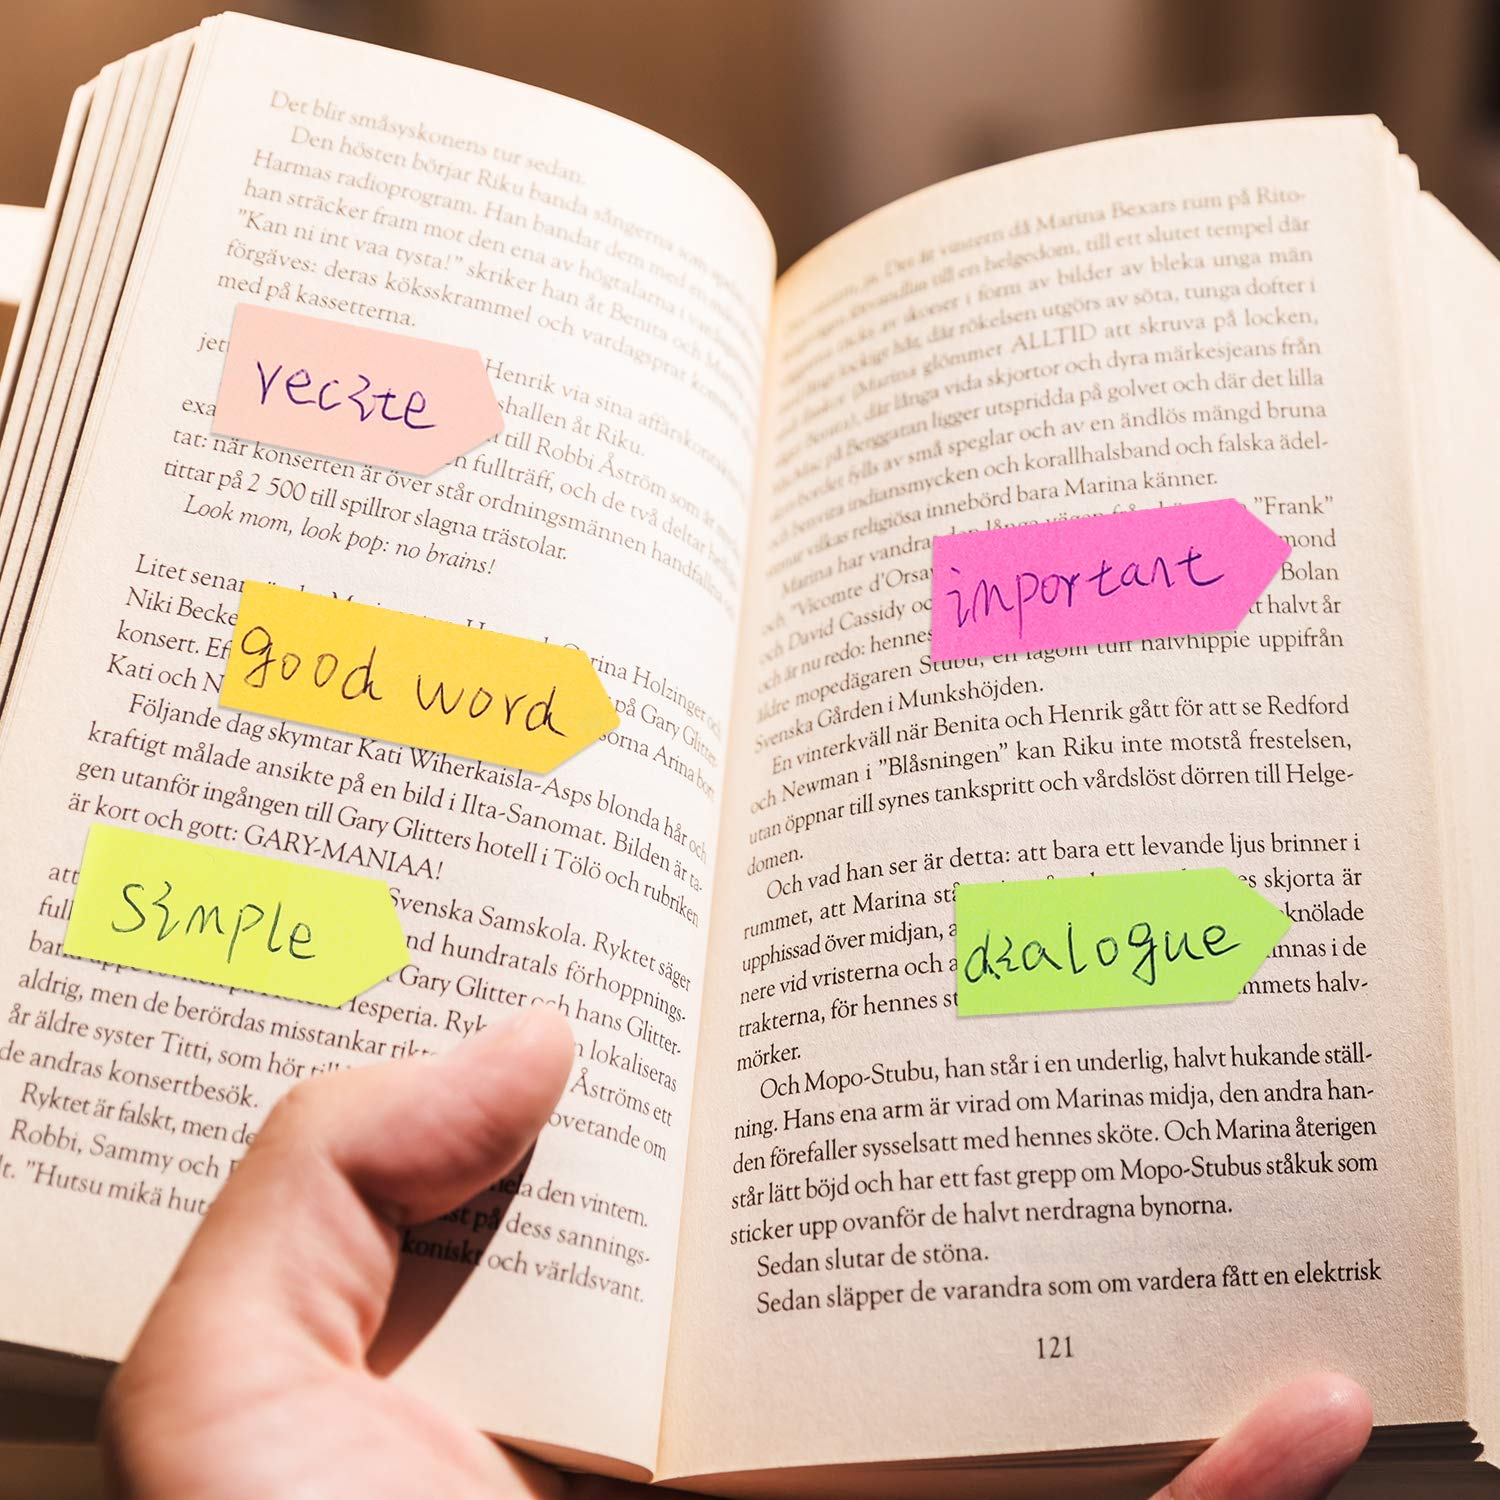 Det blir småsyskonens tur sedan.
Den hösten börjar Riku banda sångerna som spelas
Harmas radioprogram. Han bandar dem med en
han sträcker fram mot den ena av högtalarna i
"Kan ni int vaa tysta!" skriker han åt Benita och
förgäves: deras köksskrammel och vardagsprat kommer
med på kassetterna.
Henrik via sina affärskontakter
recite
shallen åt Riku.
till Robbi Åström som är
tat: när konserten är över står ordningsmännen handfallna
fullträff, och de två deltar
tittar på 2 500 till spillror slagna trästolar.
Look mom, look pop: no brains!
Litet senare
Niki Becke
rina Holzinger och
konsert. Ef
på Gary Glitter-
Kati och N
sorna Arina bort
good word
Följande dag skymtar Kati Wiherkaisla-Asps blonda hår och
kraftigt målade ansikte på en bild i Ilta-Sanomat. Bilden är ta-
gen utanför ingången till Gary Glitters hotell i Tölö och rubriken
är kort och gott: GARY-MANIAA!
att
Svenska Samskola. Ryktet säger
simple
full
nd hundratals förhoppnings-
Gary Glitter och hans Glitter-
Hesperia. Ryk
n lokaliseras
aldrig, men de berördas misstankar rikt
Åströms ett
år äldre syster Titti, som hör till
ovetande om
de andras konsertbesök.
Ryktet är falskt, men de
hela den vintern.
Robbi, Sammy och
på dess sannings-
lt. "Hutsu mikä huts
koniskt och världsvant.
Det är vintern då Marina Bexars rum på Rito-
förvandlas till en helgedom, till ett slutet tempel där
täcks av ikoner i form av bilder av bleka unga män
lockigt hår, där rökelsen utgörs av söta, tunga dofter i
(Marina glömmer ALLTID att skruva på locken,
Benita), där långa vida skjortor och dyra märkesjeans från
Mac på Berggatan ligger utspridda på golvet och där det lilla
bordet fylls av små speglar och av en ändlös mängd bruna
och benvita indiansmycken och korallhalsband och falska ädel-
stenar vilkas religiösa innebörd bara Marina känner.
Marina har vandrat den långa vägen från
"Frank"
och "Vicomte d'Orsay
mond
David Cassidy oc
Bolan
important
och är nu redo: hennes
tt halvt år
äldre mopedägaren Stubu, en lagom tuff halvhippie uppifrån
Svenska Gården i Munkshöjden.
En vinterkväll när Benita och Henrik gått för att se Redford
och Newman i "Blåsningen" kan Riku inte motstå frestelsen,
utan öppnar till synes tankspritt och vårdslöst dörren till Helge-
domen.
Och vad han ser är detta: att bara ett levande ljus brinner i
rummet, att Marina stå
es skjorta är
upphissad över midjan, a
knölade
dialogue
nere vid vristerna och a
innas i de
trakterna, för hennes st
mmets halv-
mörker.
Och Mopo-Stubu, han står i en underlig, halvt hukande ställ-
ning. Hans ena arm är virad om Marinas midja, den andra han-
den förefaller sysselsatt med hennes sköte. Och Marina återigen
står lätt böjd och har ett fast grepp om Mopo-Stubus ståkuk som
sticker upp ovanför de halvt nerdragna bynorna.
Sedan slutar de stöna.
Sedan släpper de varandra som om vardera fått en elektrisk
121